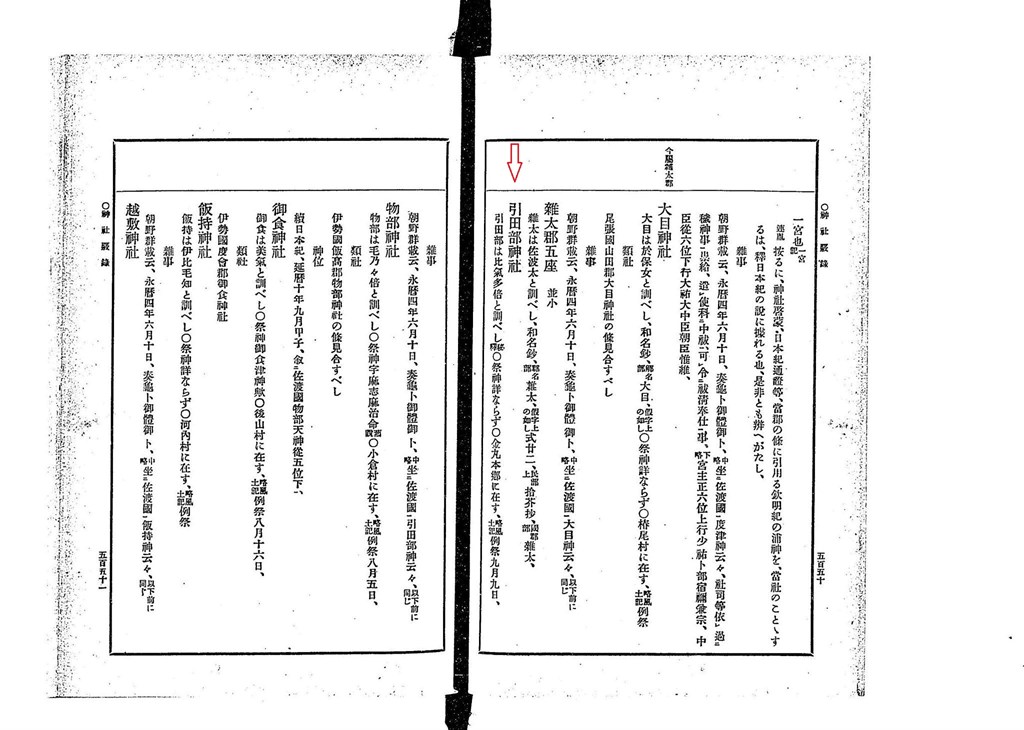 ○神社覈録
五百五十
一宮也、一宮記
連胤按るに、神社啓蒙、日本紀通證等、當郡の條に引用る欽明紀の浦神を、當社のことゝす
るは、釋日本紀の説に據れる也、是非とも辨へがたし、
雜事
朝野群載云、永暦四年六月十日、奏龜卜御體御卜、中略坐佐渡國度津神云々、社司等依過
穢神事祟給、遣使科中祓可令祓清奉仕事、下略宮主正六位上行少祐卜部宿禰兼宗、中
臣從六位下行大祐大中臣朝臣惟維、
今屬雜太郡
大目神社
大目は於保女と訓べし、和名鈔、郷名部大目、假字上の如し○祭神詳ならず○椿尾村に在す、略風土記例祭
類社
尾張國山田郡大目神社の條見合すべし
雜事
朝野群載云、永暦四年六月十日、奏龜卜御體御卜、中略坐佐渡國大目神云々、以下前に同じ
雜太郡五座 並小
雜太は佐波太と訓べし、和名鈔、郡名部雜太、假字上の如し式廿二、民部上拾芥抄、國郡部雜太、
引田部神社
引田部は比氣多倍と訓べし○祭神詳ならず○金丸本郷に在す、略風土記例祭九月九日、
○神社覈録
五百五十一
雜事
朝野群載云、永暦四年六月十日、奏龜卜御體御卜、中略坐佐渡國引田部神云々、以下前に同じ
物部神社
物部は毛乃々倍と訓べし○祭神宇麻志麻治命○小倉村に在す、略風土記例祭八月五日、
類社
伊勢國飯高郡物部神社の條見合すべし
神位
續日本紀、延暦十年九月甲子、叙佐渡國物部天神從五位下、
御食神社
御食は美氣と訓べし○祭神御食津神歟○後山村に在す、略風土記例祭八月十六日、
類社
伊勢國度會郡御食神社
飯持神社
飯持は伊比毛知と訓べし○祭神詳ならず○河内村に在す、略風土記例祭
雜事
朝野群載云、永暦四年六月十日、奏龜卜御體御卜、中略坐佐渡國飯持神云々、以下前に同じ
越敷神社